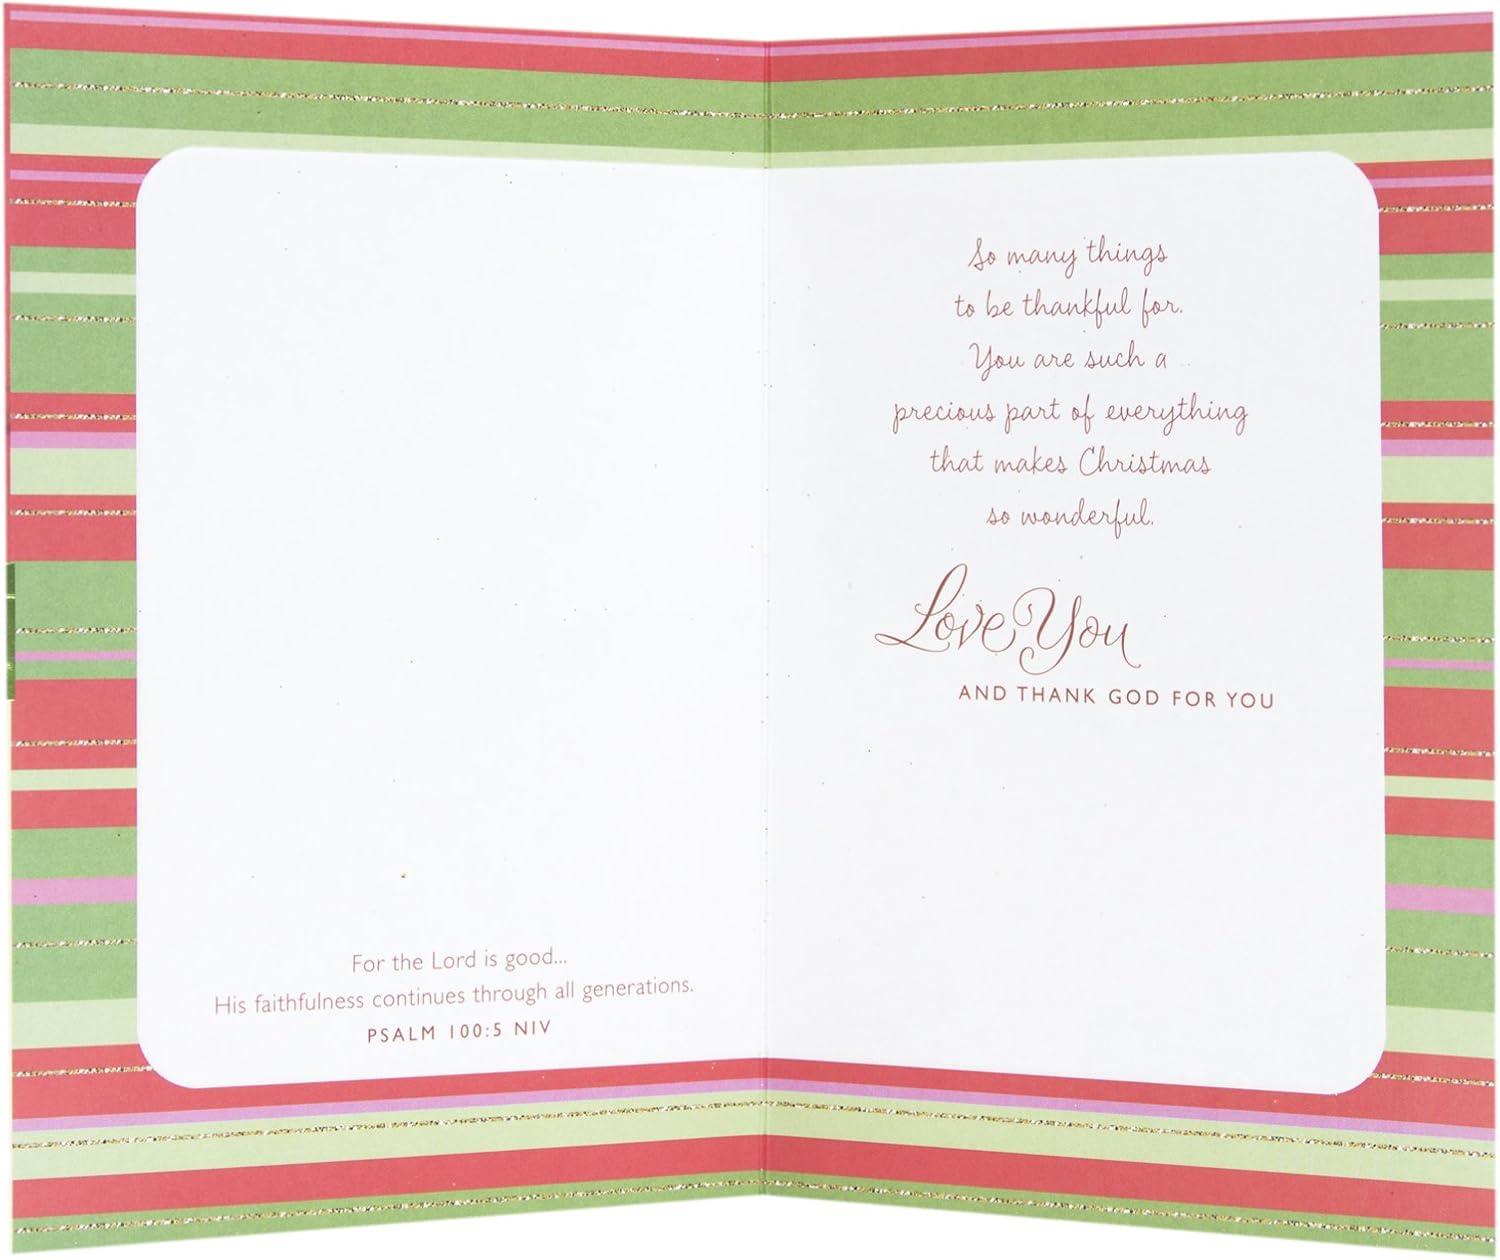 For the Lord is good...
His faithfulness continues through all generations.
PSALM 100:5 NIV
So many things
to be thankful for.
You are such a
precious part of everything
that makes Christmas
so wonderful.
Love You
AND THANK GOD FOR YOU